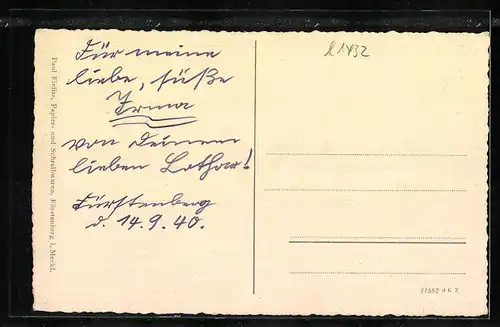 Für meine
liebe, süße
Irma
von Deinem
lieben Lothar!
Fürstenberg
d. 14.9.40.
Paul Fieliz, Papier- und Schreibwaren, Fürstenberg i. Meckl.
l1432
27552 # K 2